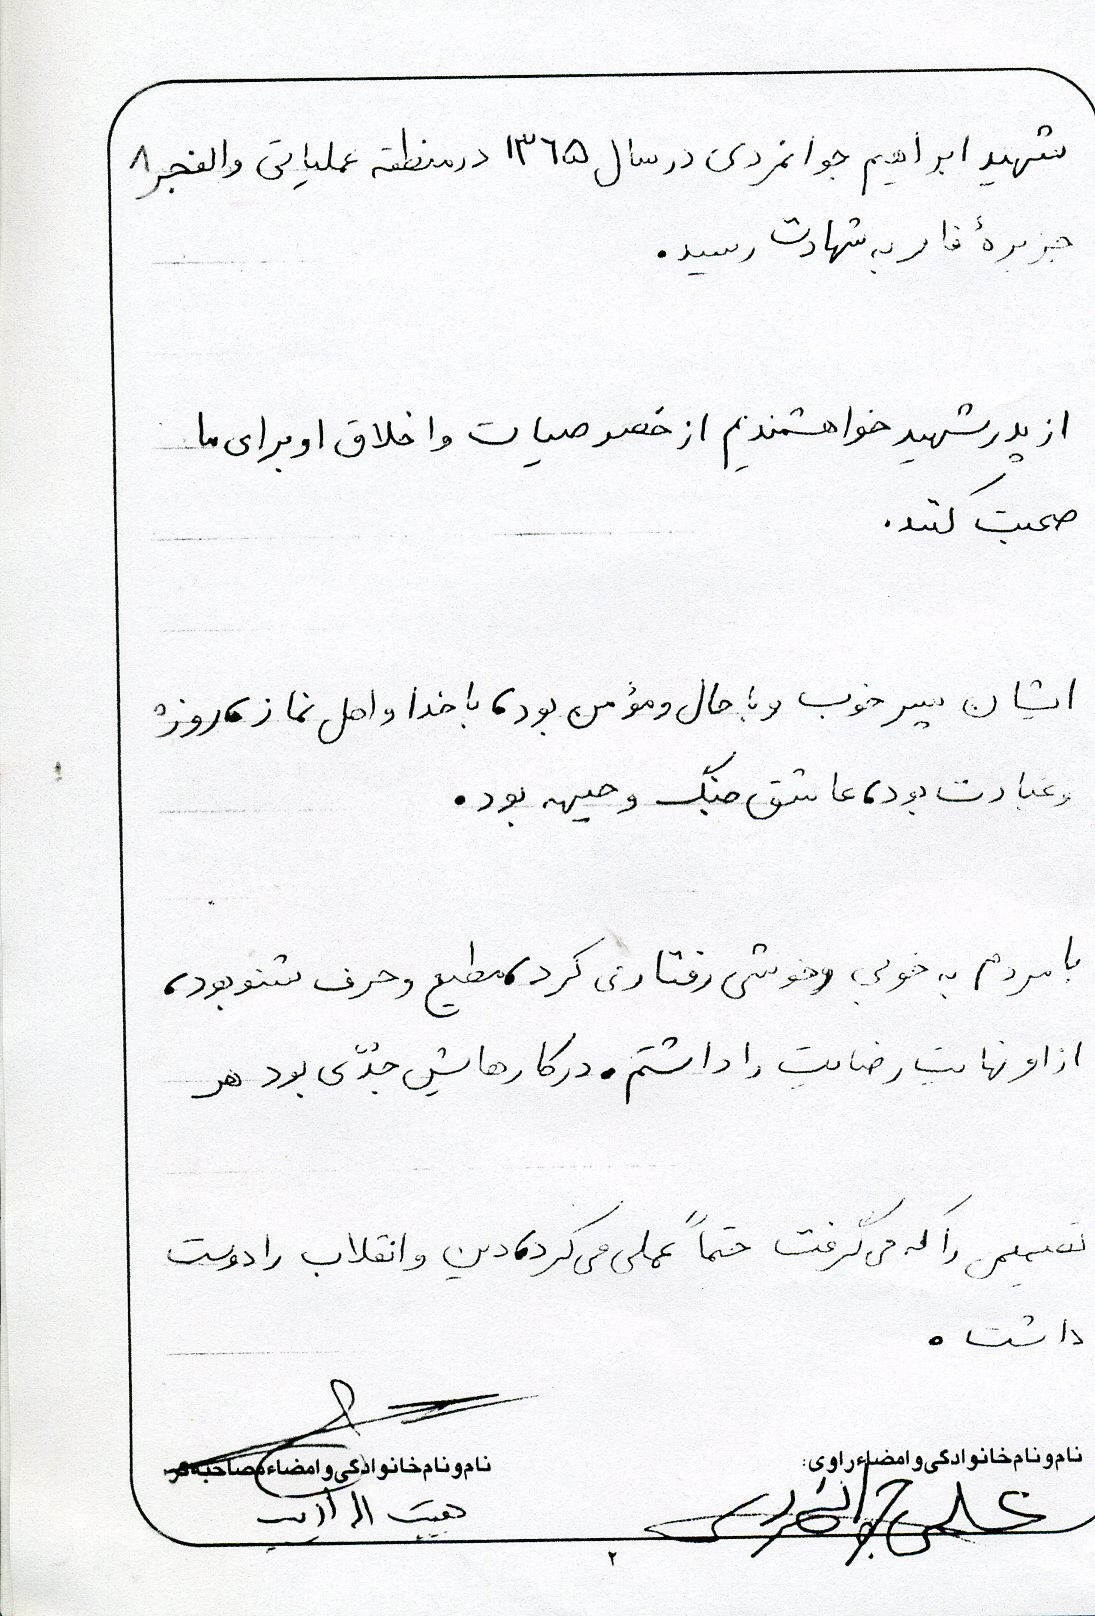 شهید ابراهیم جوانمردی در سال ۱۳۶۵ در منطقه عملیاتی والفجر ۸
جزیرهٔ فاو به شهادت رسید.
از پدر شهید خواهشمندیم از خصوصیات و اخلاق او برای ما
صحبت کنند.
ایشان پسر خوب و باحال و مؤمن بود، با خدا و اهل نماز، روزه
و عبادت بود، عاشق جنگ و جبهه بود.
با مردم به خوبی و خوشی رفتار می کرد، مطیع و حرف شنو بود،
از او نهایت رضایت را داشتم. در کارهایش جدّی بود هر
تصمیمی را که می گرفت حتماً عملی می کرد، دین و انقلاب را دوست
داشت.
نام و نام خانوادگی و امضاء راوی:
علی جوانمردی
نام و نام خانوادگی و امضاء مصاحبه گر:
۲